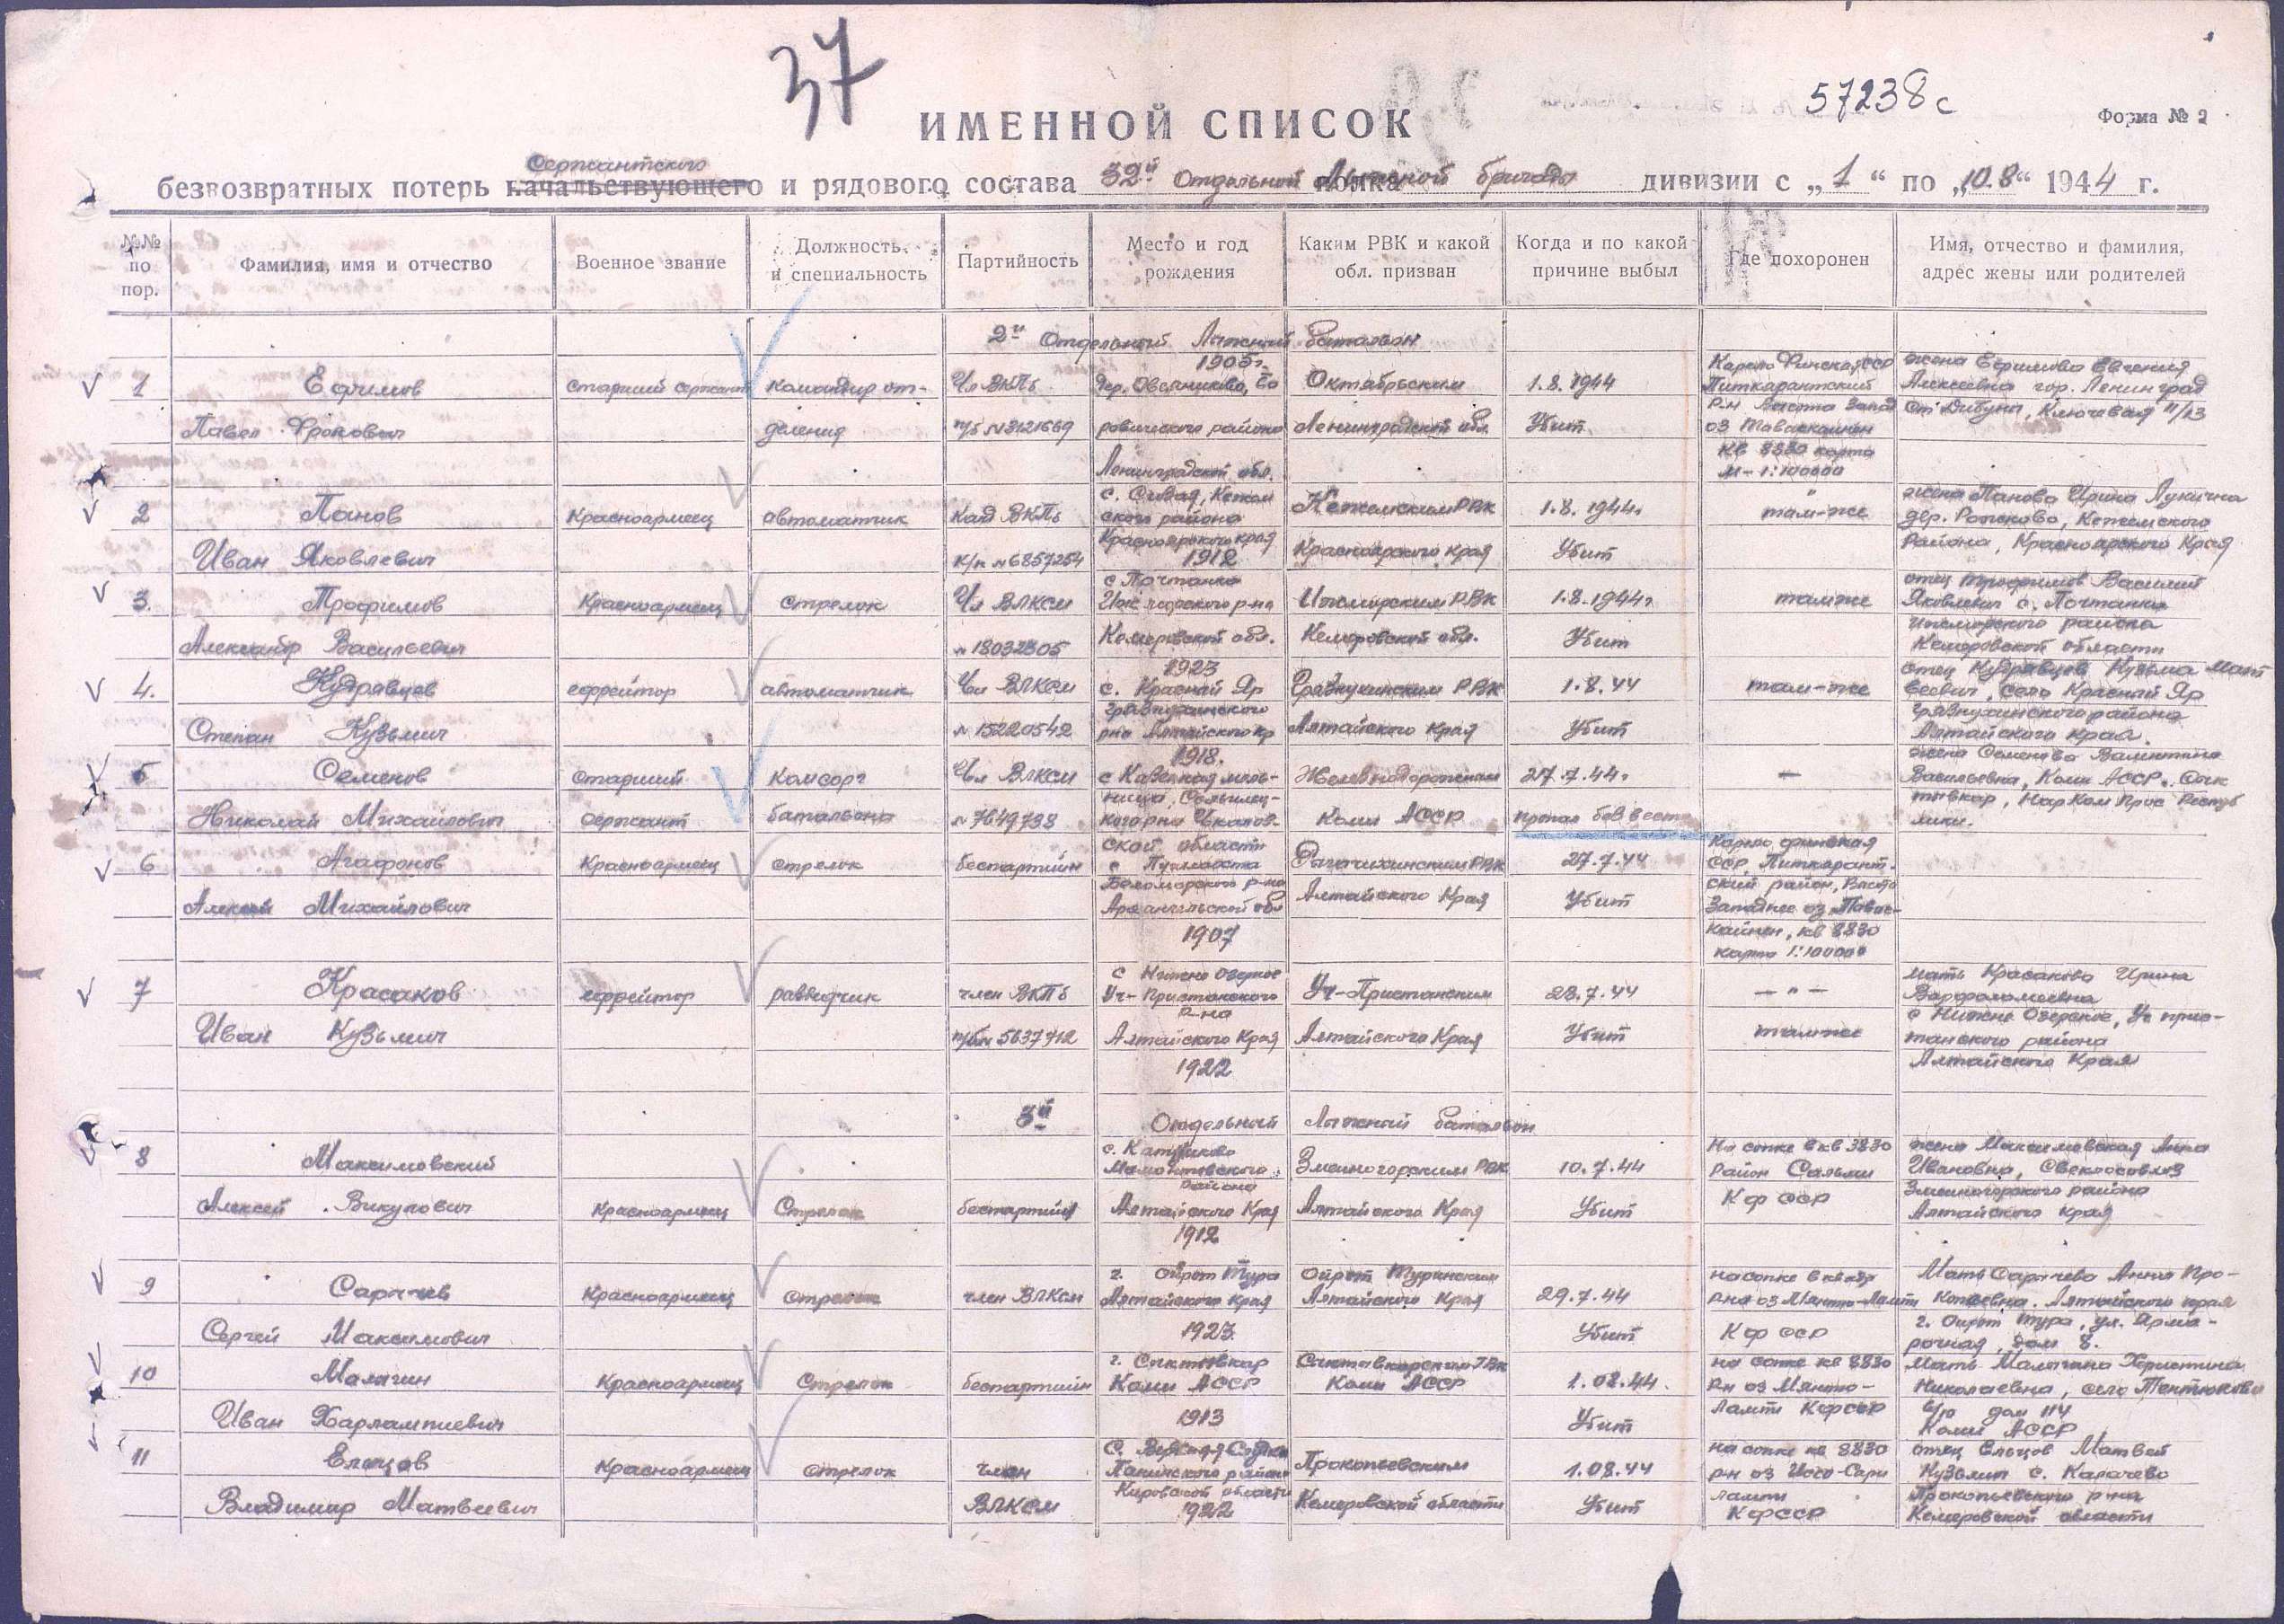 37
57238с
ИМЕННОЙ СПИСОК
Форма № 2
Сержантского
безвозвратных потерь начальствующего и рядового состава 32й Отдельной полка Лыжной бригады дивизии с „1“ по „10.8“ 1944 г.
№№ по пор.
Фамилия, имя и отчество
Военное звание
Должность и специальность
Партийность
Место и год рождения
Каким РВК и какой обл. призван
Когда и по какой причине выбыл
Где похоронен
Имя, отчество и фамилия, адрес жены или родителей
2й Отдельный Лыжный батальон
1 Ефимов старший сержант командир от- Чл ВКПб 1905г. дер. Овсяниково, Бо Октябрьским 1.8.1944 Карело Финская ССР Питкарантский жена Ефимова Евгения Алексеевна гор. Ленинград
Павел деления п/б №3121669 ровичского района Ленинградской обл. Убит р-н Запад оз ст Дибуны, Ключевая 11/23
Ленинградской обл. кв 8830 карта
М-1:100000
2 Панов Красноармеец автоматчик Канд ВКПб с. Кежем ского района Кежемским РВК 1.8.1944г там-же жена Панова Ирина Лукична дер. Рожково, Кежемского
Иван Яковлевич к/к №6857254 Красноярского края 1912 Красноярского края Убит района, Красноярского Края
3. Трофимов Красноармеец стрелок Чл ВЛКСМ с Почтанка Ижморского р-на Ижморским РВК 1.8.1944г там же отец Трофимов Василий Яковлевич с. Почтанка
Александр Васильевич №18032305 Кемеровской обл. Кемеровской обл. Убит Ижморского района
1923 Кемеровской области
4. Кудрявцев ефрейтор автоматчик Чл ВЛКСМ с. Красный Яр Грязнухинским РВК 1.8.44 там-же отец Кудрявцев Кузьма Мат веевич, село Красный Яр
Степан Кузьмич №15220542 Грязнухинского рна Алтайского кр Алтайского Края Убит Грязнухинского района
1918. Алтайского края.
5 Семенов старший комсорг Чл ВЛКСМ с Казенная мель- Железнодорожным 27.7.44г — жена Семенова Валентина Васильевна, Коми АССР. Сык
Николай Михайлович сержант батальона №7649738 ница, когорна Чкалов- Коми АССР пропал без вести тывкар, НарКомПрос Респуб
ской области лики.
6 Агафонов Красноармеец стрелок беспартийн с 27.7.44 Карело финская ССР, Питкарант-
Алексей Михайлович Беломорского р-на Архангельской обл Алтайского Края Убит ский район, Западнее оз.
1907 кв 8830
карта 1:100000
7 Красаков ефрейтор разведчик член ВКПб с Нижне Озерное Уч-Пристанского Уч-Пристанским 28.7.44 — " — мать Красакова Ирина Варфоломеевна
Иван Кузьмич п/б№ 5637912 р-на Алтайского Края Алтайского Края Убит там же с Нижне Озерское, Уч прис- танского района
1922 Алтайского Края
3й Отдельный Лыжный батальон
8 Максимовский с. Мамонтовского Змеиногорским РВК 10.7.44 На сопке в кв 3830 район Салми жена Максимовская Анна Ивановна, Свеклосовхоз
Алексей Викулович Красноармеец Стрелок беспартийн района Алтайского Края Алтайского Края Убит КФ ССР Змеиногорского района
1912 Алтайского края
9 Сарычев Красноармеец стрелок член ВЛКСМ г. Ойрот Тура Алтайского края Ойрот Туринским Алтайского Края 29.7.44 на сопке в р-на оз Мянто-Лампи Мать Сарычева Анна Про- копьевна. Алтайского края
Сергей Максимович 1923 Убит КФ ССР г. Ойрот Тура, ул. Ярма- рочная, дом 8.
10 Малыгин Красноармеец Стрелок беспартийн г. Сыктывкар Коми АССР Сыктывкарским ГВК Коми АССР 1.08.44. на сопке кв 8830 рн оз Мянто- Мать Малыгина Христина Николаевна, село Тентюково
Иван Харлампиевич 1913 Убит Лампи КФССР дом 114
Коми АССР
11 Ельцов Красноармеец стрелок член С. Верхняя Кировской области Прокопьевским 1.08.44 на сопке кв 8830 рн оз отец Ельцов Матвей Кузьмич с. Карачево
Владимир Матвеевич ВЛКСМ 1922 Кемеровской области Убит лампи КФССР Прокопьевского р-на Кемеровской области